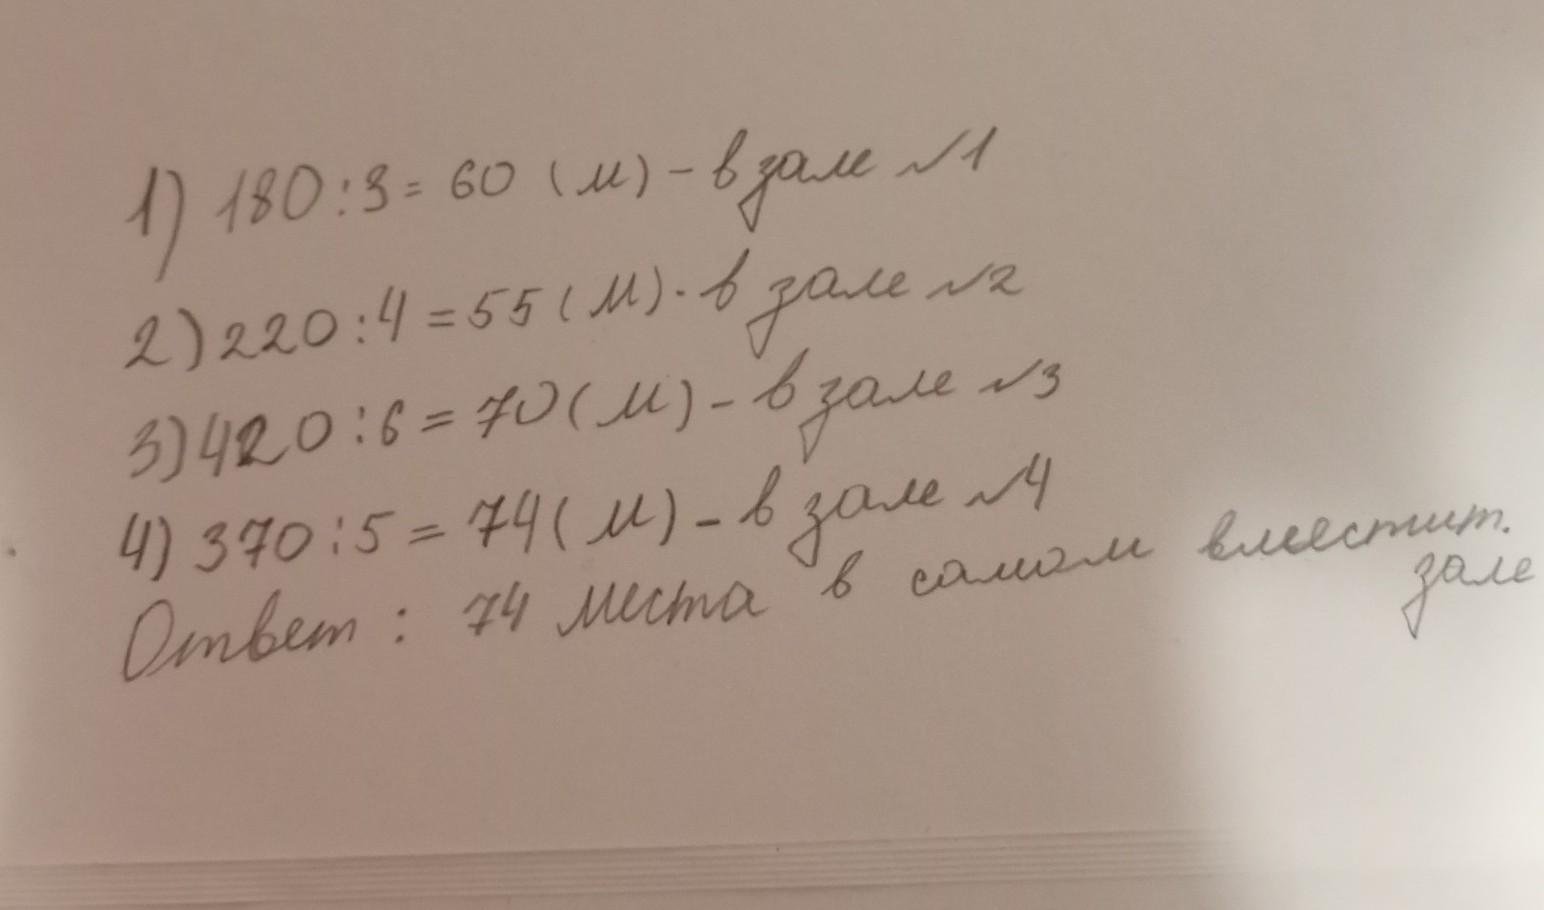 1) 180:3= 60 (м) - в зале №1
2) 220:4=55(м). в зале №2
3) 420:6=70(м) - в зале №3
4) 370:5=74(м) - в зале №4
Ответ: 74 места в самом вместит.
зале